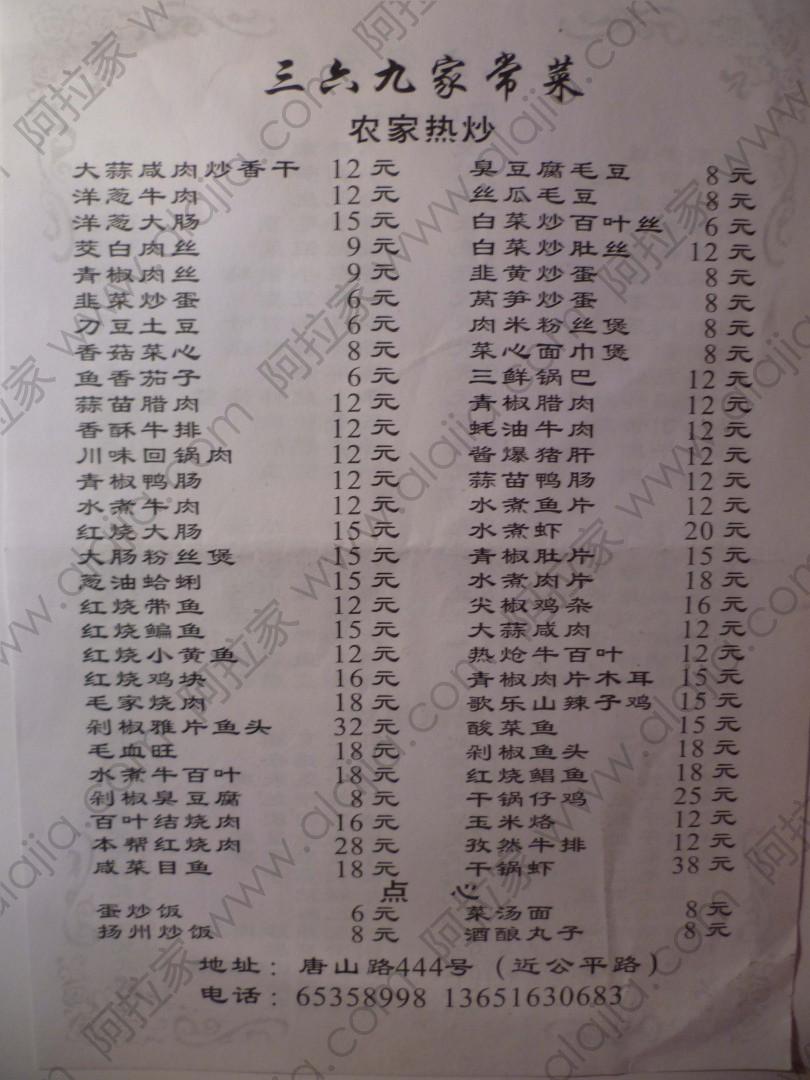 三六九家常菜
农家热炒
大蒜咸肉炒香干 12元 臭豆腐毛豆 8元
洋葱牛肉 12元 丝瓜毛豆 8元
洋葱大肠 15元 白菜炒百叶丝 6元
茭白肉丝 9元 白菜炒肚丝 12元
青椒肉丝 9元 韭黄炒蛋 8元
韭菜炒蛋 6元 莴笋炒蛋 8元
刀豆土豆 6元 肉米粉丝煲 8元
香菇菜心 8元 菜心面巾煲 8元
鱼香茄子 6元 三鲜锅巴 12元
蒜苗腊肉 12元 青椒腊肉 12元
香酥牛排 12元 蚝油牛肉 12元
川味回锅肉 12元 酱爆猪肝 12元
青椒鸭肠 12元 蒜苗鸭肠 12元
水煮牛肉 12元 水煮鱼片 12元
红烧大肠 15元 水煮虾 20元
大肠粉丝煲 15元 青椒肚片 15元
葱油蛤蜊 15元 水煮肉片 18元
红烧带鱼 12元 尖椒鸡杂 16元
红烧鳊鱼 15元 大蒜咸肉 12元
红烧小黄鱼 12元 热炝牛百叶 12元
红烧鸡块 16元 青椒肉片木耳 15元
毛家烧肉 18元 歌乐山辣子鸡 15元
剁椒雅片鱼头 32元 酸菜鱼 15元
毛血旺 18元 剁椒鱼头 18元
水煮牛百叶 18元 红烧鲳鱼 18元
剁椒臭豆腐 8元 干锅仔鸡 25元
百叶结烧肉 16元 玉米烙 12元
本帮红烧肉 28元 孜然牛排 12元
咸菜目鱼 18元 干锅虾 38元
点 心
蛋炒饭 6元 菜汤面 8元
扬州炒饭 8元 酒酿丸子 8元
地址：唐山路444号（近公平路）
电话：65358998 13651630683
阿拉家 www.alajia.com